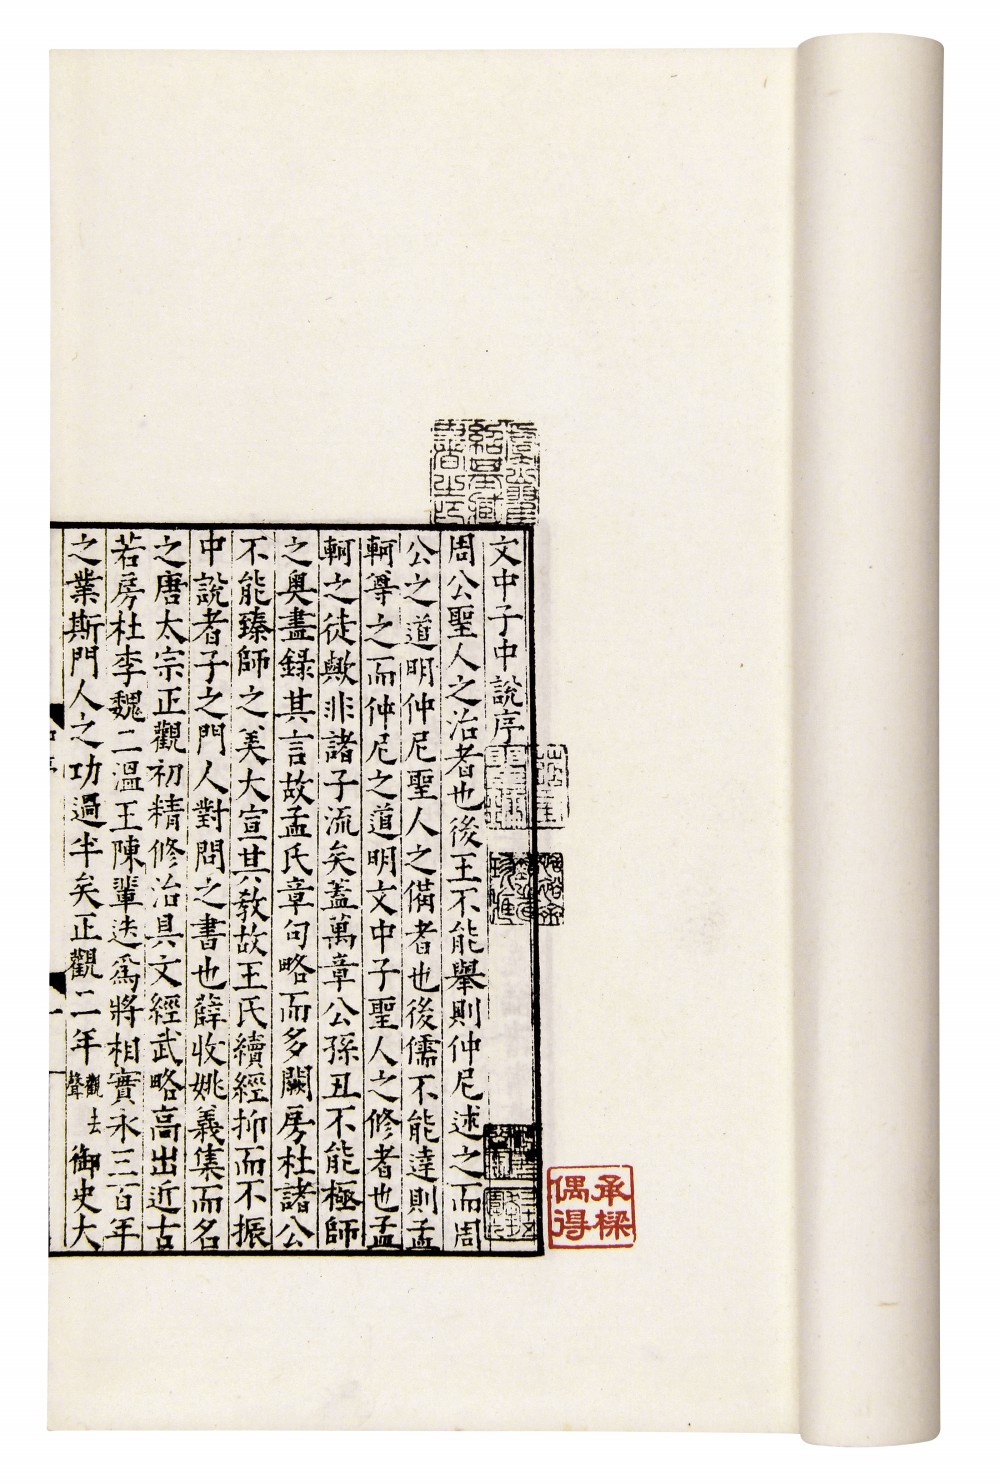 文中子中說序
周公聖人之治者也後王不能舉則仲尼述之而周
公之道明仲尼聖人之備者也後儒不能達則孟
軻尊之而仲尼之道明文中子聖人之修者也孟
軻之徒歟非諸子流矣蓋萬章公孫丑不能極師
之奧盡錄其言故孟氏章句略而多闕房杜諸公
不能臻師之美大宣其教故王氏續經抑而不振
中說者子之門人對問之書也薛收姚義集而名
之唐太宗正觀初精修治具文經武略高出近古
若房杜李魏二溫王陳輩迭爲將相實永三百年
之業斯門人之功過半矣正觀二年
觀去
聲
御史大
承樑
偶得